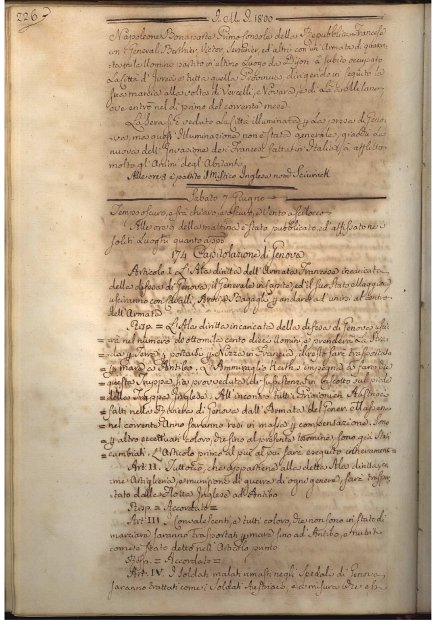 226
A. M. D. 1800
Napoleone Bonaparte Primo Console della Repubblica Francese
con i Generali Berthier, Victor, ed altri con un Armata di
mila Uomini partito in ultimo luogo da Dijon à subito occupato
la Città di e tutta quella Provincia, dirigendo in seguito la
sua marcia alla volta di Vercelli, Novara, e di là a Milano,
ove entrò nel dì primo del corrente mese.
La sera s'è veduto la Città illuminata per la presa di Geno-
va, ma questa Illuminazione non è stata generale, giacchè la
nuova dell'Invasione de' Francesi fatta in Italia à afflitto
molto gl'Animi degl'Abitanti.
Alle ore è partito il Ministro Inglese nom.
Sabato 7 Giugno
Tempo oscuro, e frà chiaro, e oscuro, e Vento a Scilocco
Alle ore della mattina è stato pubblicato, ed affissato ne
soliti Luoghi quanto app.
174 Capitolazione di Genova
Articolo I. L'Ala diritta dell'Armata Francese incaricata
della difesa di Genova, il Generale in Capite, ed il suo Stato Maggiore
usciranno con Cavalli, Armi, e Bagagli, e andare a unirsi al centro
dell'Armata
Risp. = L'Ala diritta incaricata della difesa di Genova usci-
rà nel numero di ottomila cento dieci Uomini e prenderà la Stra-
da per portarsi per Nizza in Francia, il resto sarà trasportato
per mare a Antibo. L'Ammiraglio Keith s'impegna a far che
questa Truppa sia proveduta di sussistenza in biscotto sul piede
della Truppa Inglese. All'incontro tutti i Prigionieri Austriaci
fatti nella Riviera di Genova dall'Armata del Gener. Massena
nel corrente Anno saranno resi in massa per compensazione. Sono
per altro eccettuati coloro, che sino al presente termine sono già stati
cambiati. L'Articolo primo al più al più sarà eseguito interamente
Art. II. Tuttociò, che appartiene alla detta Ala diritta, co-
me Artiglieria, e munizione di guerra di ogni genere sarà traspor-
tato dalla Flotta Inglese ad Antibo
Risp. = Accordato =
Art. III. I Convalescenti, e tutti coloro, che non sono in stato di
marciare saranno trasportati per mare sino ad Antibo, e nutriti
come è stato detto nell'Articolo primo
Risp. = Accordato =
Art. IV. I Soldati malati rimasti negli Spedali di Genova
saranno trattati come i Soldati Austriaci, e a misura che